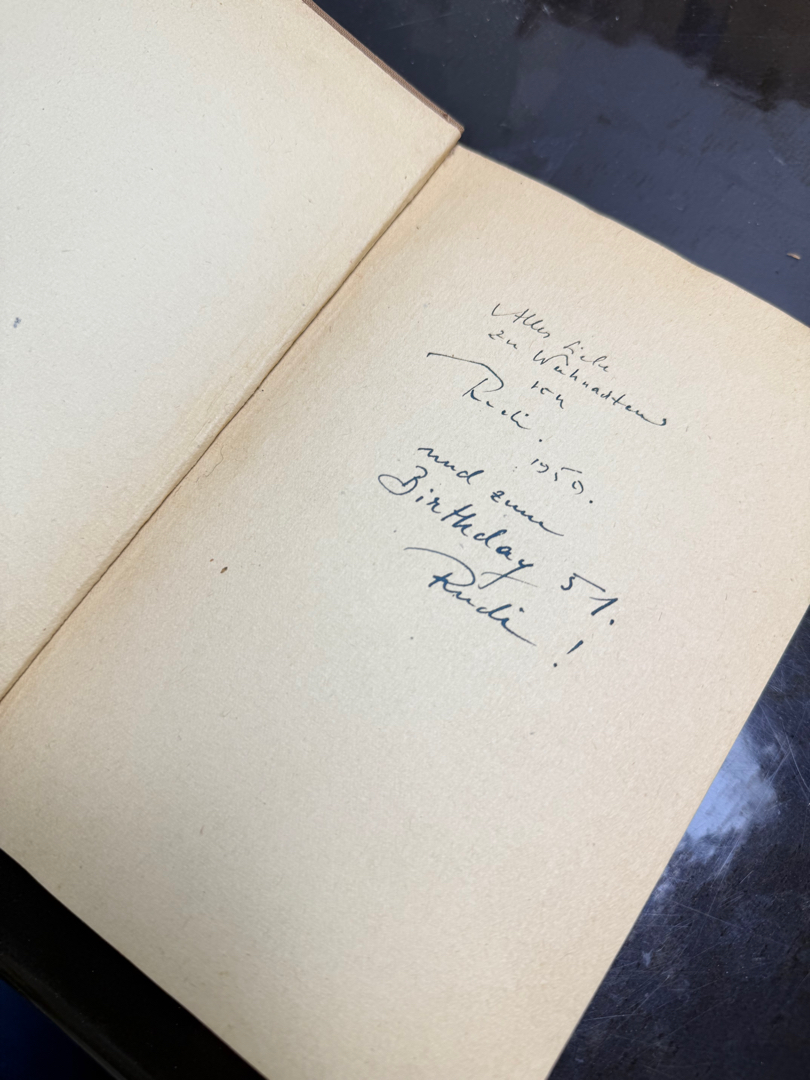 Alles Liebe
zu Weihnachten
von
Rudi.
1950.
und zum
Birthday 51.
Rudi!